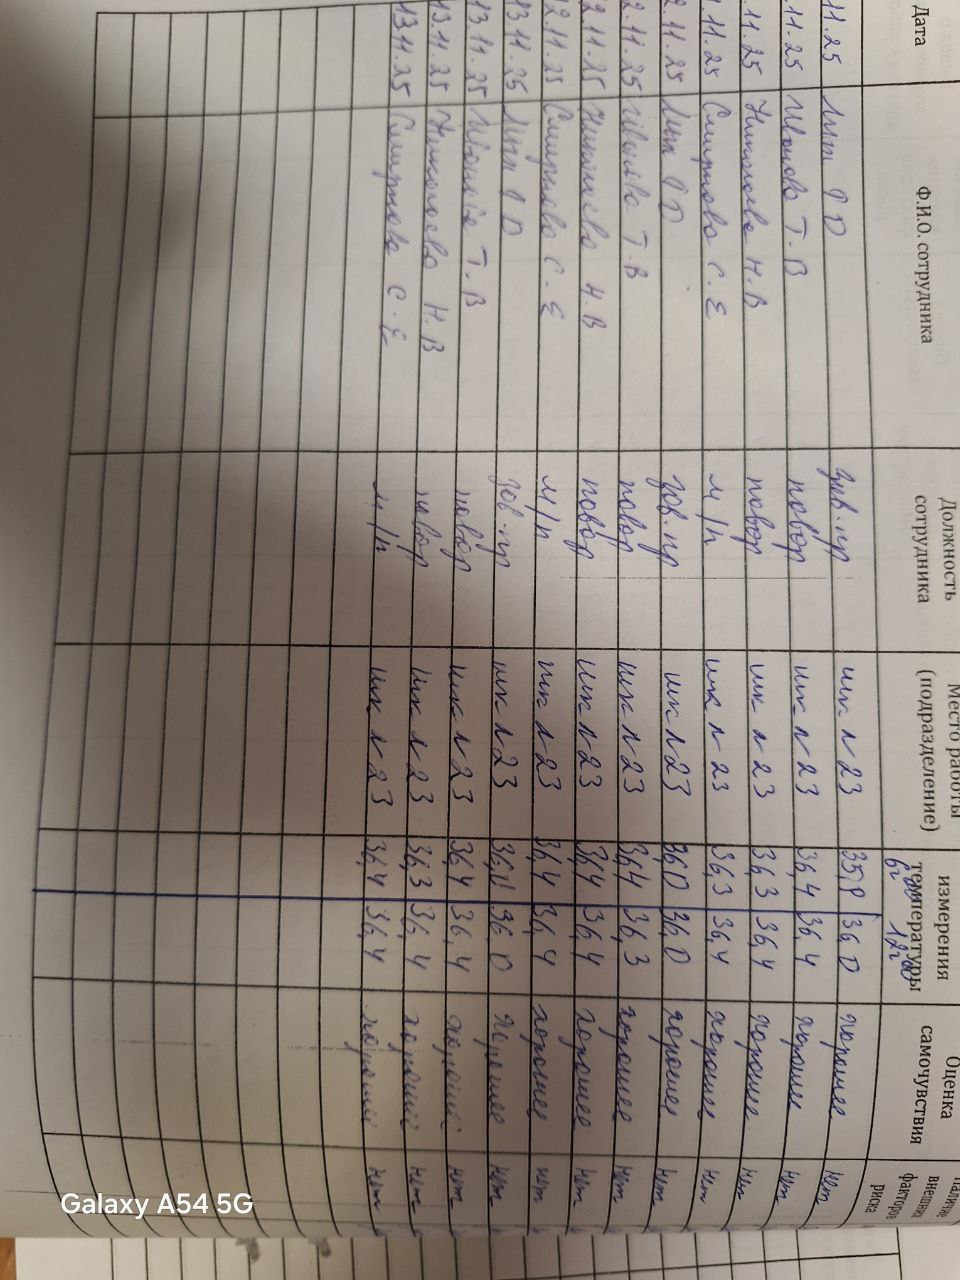 Дата Ф.И.О. сотрудника Должность сотрудника Место работы (подразделение) измерения температуры Оценка самочувствия внешних факторов риска
11.25 Лит О D зав.пр шк n 23 35,8 36,0 хорошее нет
.11.25 Иванова Т.В повар шк n 23 36,4 36,4 хорошее нет
.11.25 Николаева Н.В повар шк n 23 36,3 36,4 хорошее нет
.11.25 Смирнова С.Е м/п шк n 23 36,3 36,4 хорошее нет
2.11.25 D зав.пр шк n 23 36,0 36,0 хорошее нет
2.11.25 Иванова Т.В повар шк n 23 36,4 36,3 хорошее нет
12.11.25 Николаева Н.В повар шк n 23 36,4 36,4 хорошее нет
12.11.25 Смирнова С.Е м/п шк n 23 36,4 36,4 хорошее нет
13.11.25 D зав.пр шк n 23 36,0 хорошее нет
13.11.25 Иванова Т.В повар шк n 23 36,4 36,4 хороший нет
13.11.25 Николаева Н.В повар шк n 23 36,3 36,4 хороший нет
13.11.25 Смирнова С.Е м/п шк n 23 36,4 36,4 хороший нет
Galaxy A54 5G